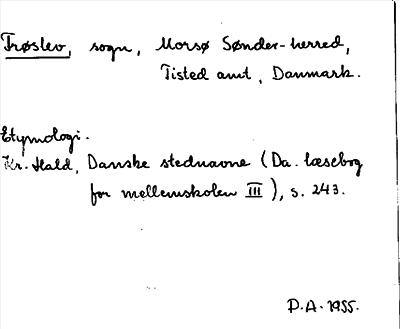 Trøslev, sogn, Morsø Sønder-herred,
Tisted amt, Danmark.
Etymologi.
Kr. Hald, Danske stednavne (Da. læsebog
for mellemskolen III), s. 243.
P.A. 1955.